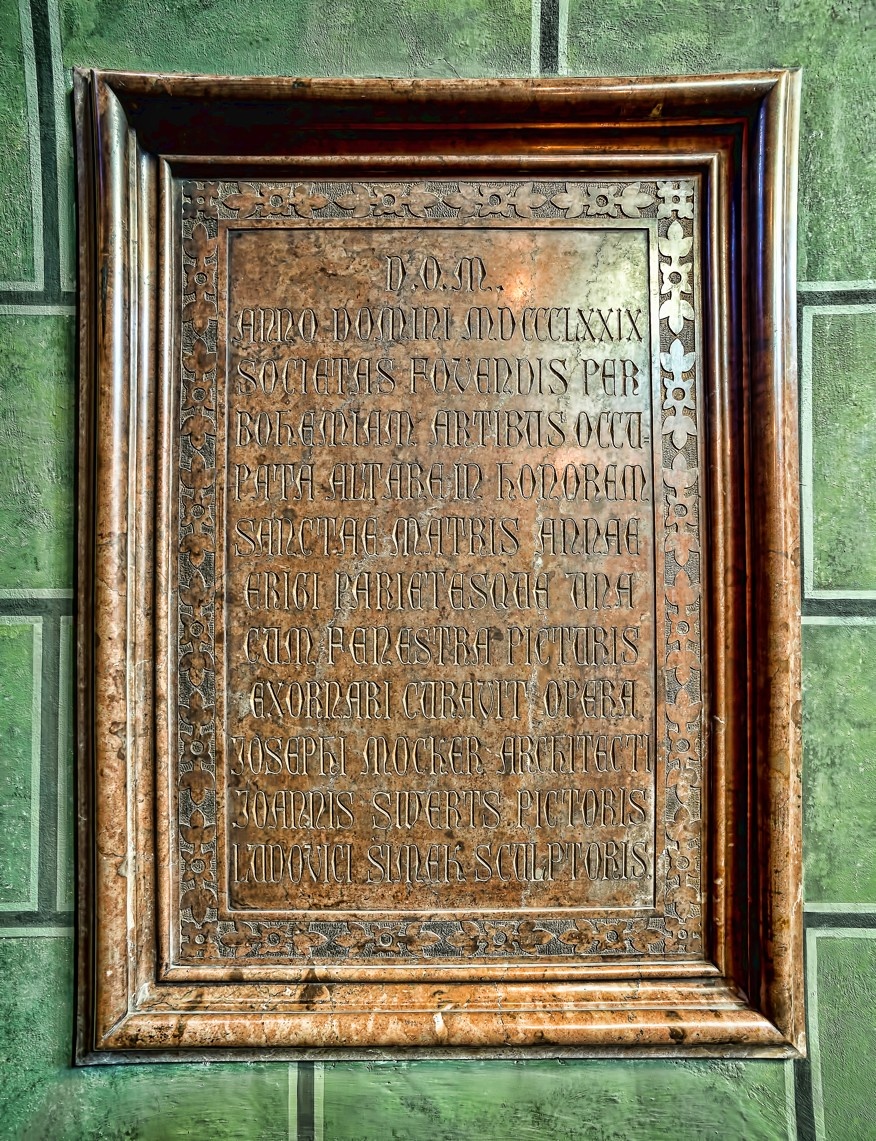 D.O.M.
ANNO DOMINI MDCCCLXXIX
SOCIETAS FOVENDIS PER
BOHEMIAM ARTIBUS OCCU-
PATA ALTARE IN HONOREM
SANCTAE MATRIS ANNAE
ERIGI PARIETESQUE UNA
CUM FENESTRA PICTURIS
EXORNARI CURAVIT OPERA
JOSEPHI MOCKER ARCHITECTI
JOANNIS SWERTS PICTORIS
LUDOVICI ŠIMEK SCULPTORIS.